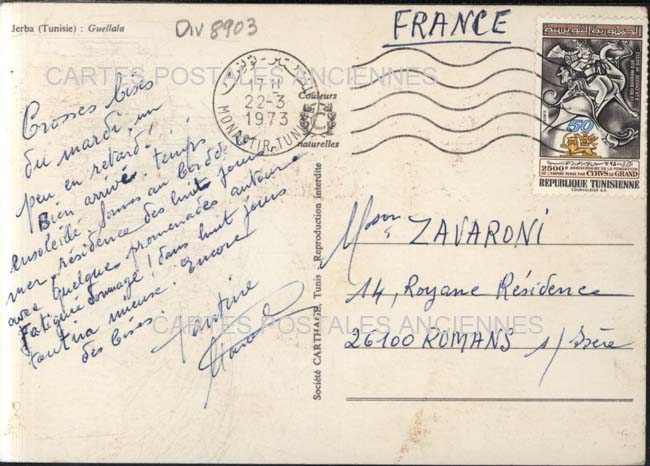 Jerba (Tunisie) : Guellala
Div 8903
FRANCE
CARTES POSTALES ANCIENNES
17-H
22-3
1973
MONASTIR-TUNISIE
Couleurs
naturelles
50
2500e ANNIVERSAIRE DE LA FONDATION
DE L'EMPIRE PERSE PAR CYRUS LE GRAND
REPUBLIQUE TUNISIENNE
COURVOISIER S.A.
Grosses bises
du mardi, un
peu en retard!
Bien arrivé. temps
ensoleillé. Sommes au bord de
mer, résidence des huit jours
avec quelques promenades autour
Fatiguée dommage! dans huit jours
mieux. Encore
des bises.
Société CARTHAGE, Tunis - Reproduction interdite
ZAVARONI
14, Royane Résidence
26100 ROMANS s/ Isère
CARTES POSTALES ANCIENNES